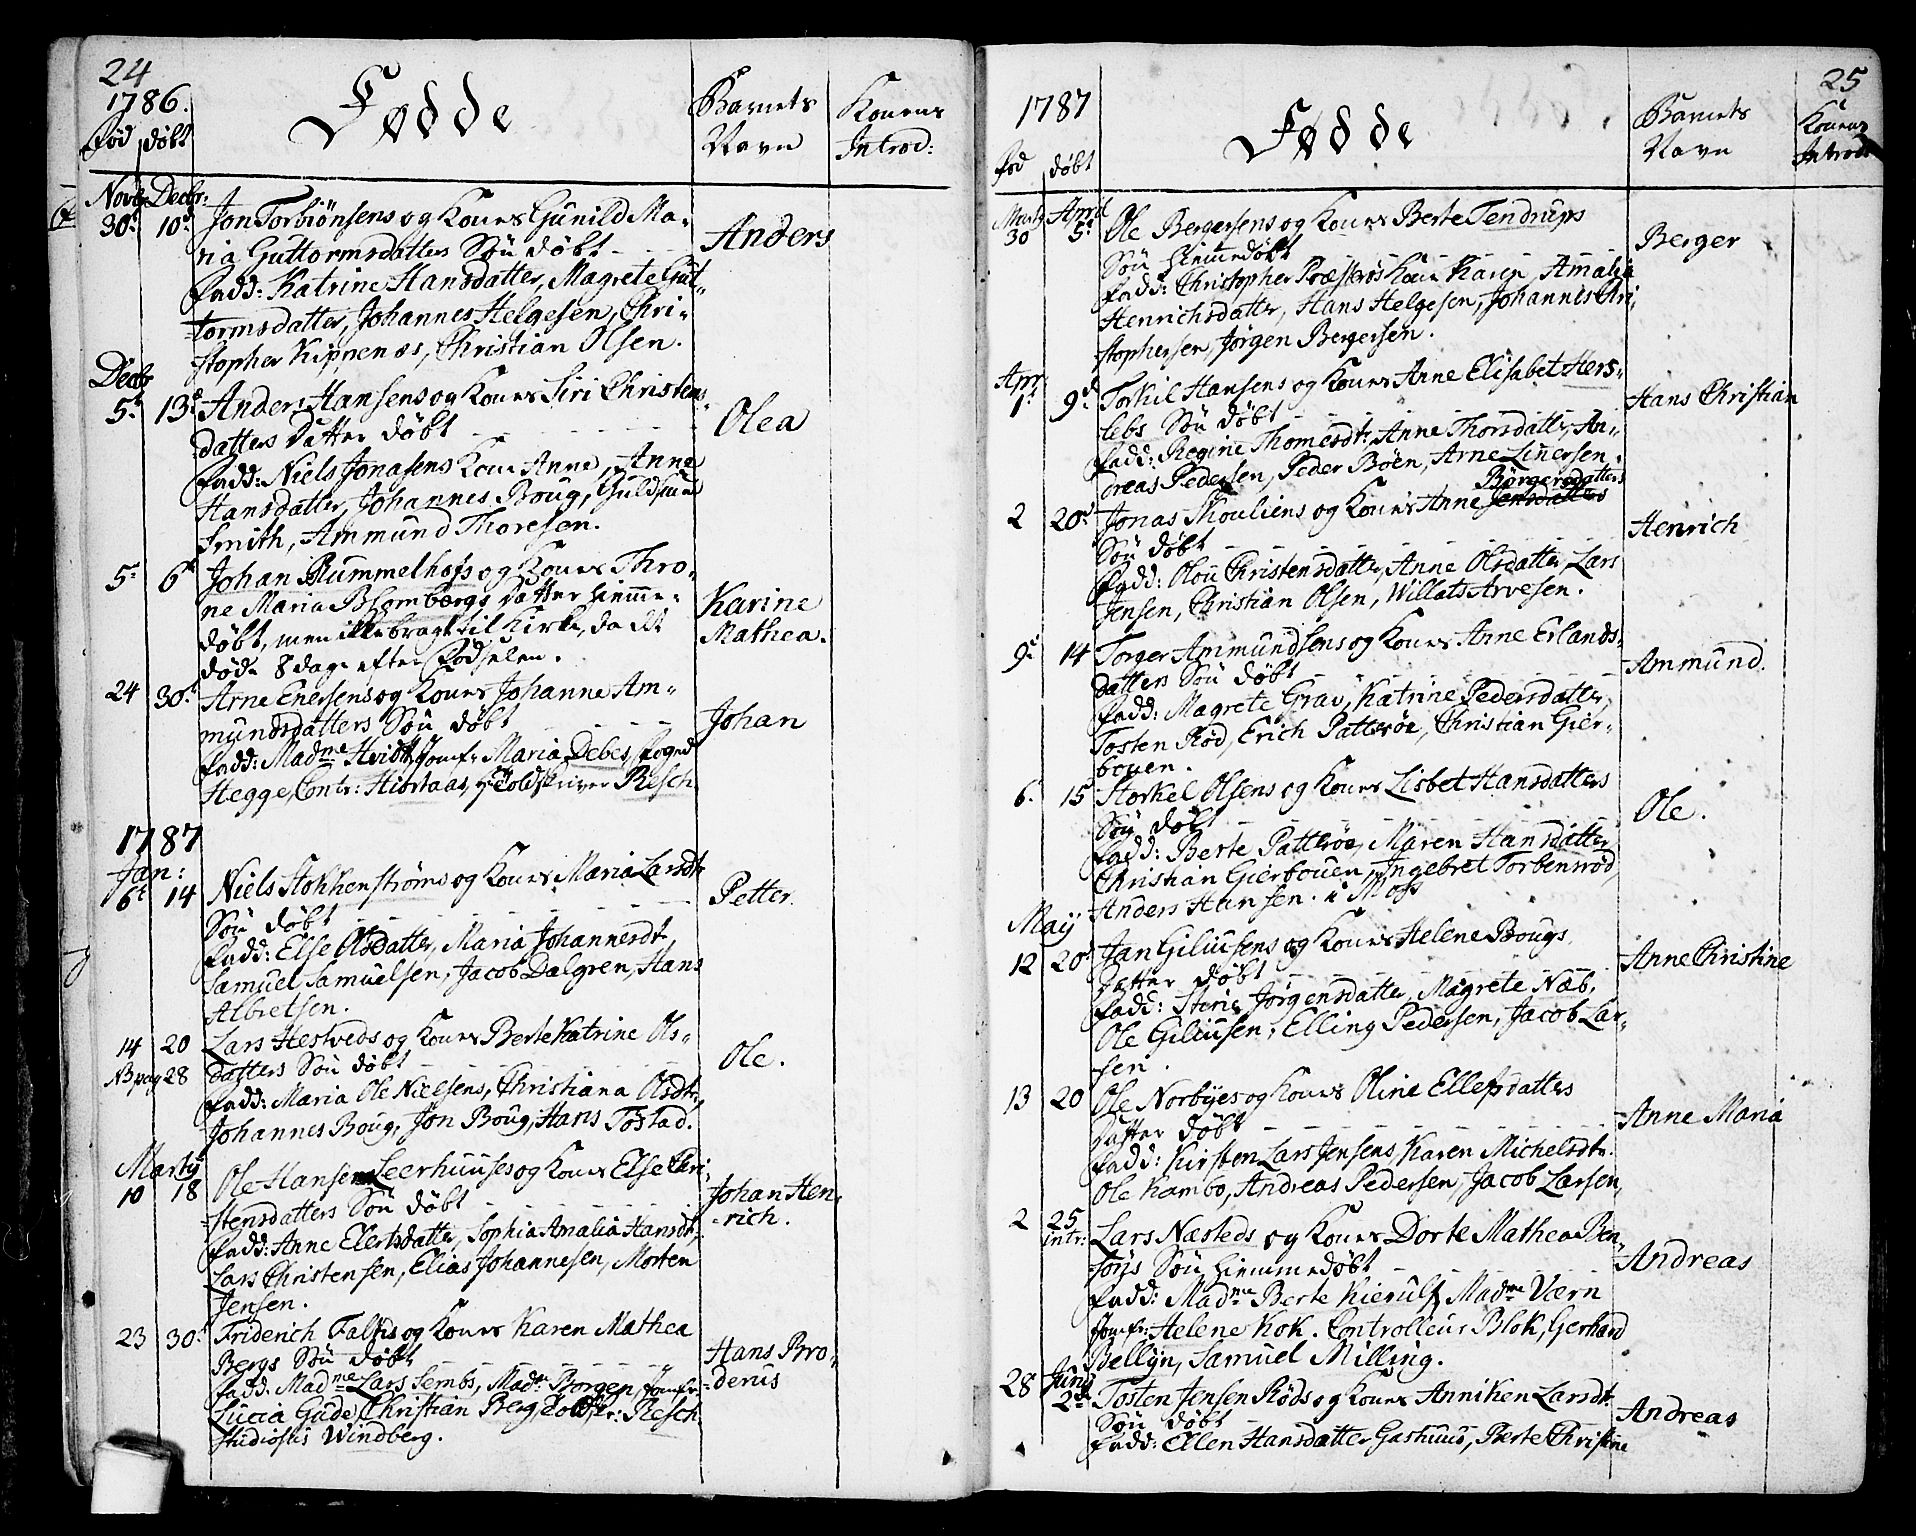 24
1786.
Fødde
Barnets Navn
Konens Introd:
Fød døbt
Novbr Decbr:
30. 10. Jon Torbiönsens og Kones Gunild Ma-
ria Guttormsdatters Sön döbt - Anders
Fadd: Katrine Hansdatter, Magrete Gut-
tormsdatter, Johannes Helgesen, Chri-
stopher Kippenæs, Christian Olsen.
Decbr
5. 13. Anders Hansens og Kones Siri Christens-
datters Datter döbt - Olea
Fadd: Niels Jonasens Kone Anne, Anne
Hansdatter, Johannes Boug, Guldsmed
Smith, Ammund Thoresen.
5. 6. Johan Rummelhofs og Kones Thro-
ne Maria Blombergs Datter hiemme-
Karine
døbt, men ikke bragt til Kirke, da det
Mathea.
døde 8 dage efter Fødselen.
24 30. Arne Enersens og Kones Johanne Am-
mundsdatters Sön döbt Johan
Fadd: Madme Hvidt, Jomfr Maria Debes, Foged
Hegge, Contr: Hiortaas, Toldskriver Resch
1787
Jan:
6. 14 Niels Stokkenströms og Kones Maria Larsdt
Petter.
Sön döbt
Fadd: Else Olsdatter, Maria Johannesdt,
Samuel Samuelsen, Jacob Dalgren, Hans
Albretsen.
14 20 Lars Hestveds og Kones Berte Katrine Ols-
NB pag 28 datters Sön döbt Ole.
Fadd: Maria Ole Nielsens, Christiana Olsdtr,
Johannes Boug, Jon Boug, Hans Tostad.
Martij
10 18 Ole Hansen Leerhuuses og Kones Else Chri-
stensdatters Sön döbt
Johan Hen-
rich.
Fadd: Anne Elertsdatter, Sophia Amalia Hansdt,
Lars Christensen, Elias Johannesen, Morten
Jensen.
23 30. Friderich Falks og Kones Karen Mathea
Bergs Sön döbt
Hans Bro-
derus
Fadd: Madme Lars Sembs, Madme Borgen, Jomfr:
Lucia Gude, Christian Berg, Toldskr: Resch
Studiosus Windberg.
25
1787
Fødde
Barnets Navn
Konens Introd:
Fød døbt
Marty April
30 5. Ole Bergersens og Kones Berte Tendrups
Sön hiemmedöbt Berger
Fadd: Christopher Præsterös Kone Karen, Amalia
Henrichsdatter, Hans Helgesen, Johannes Chri-
stophersen, Jörgen Bergersen.
Apr:
1. 9. Torkil Hansens og Kones Anne Elisabet Hers-
lebs Sön döbt Hans Christian
Fadd: Regine Thomesdt: Anne Thorsdatter, An-
dreas Pedersen, Peder Böen, Arne Linersen.
Börgersdatters
2 20. Jonas Thouliens og Kones Anne Jensdatters
Sön döbt Henrich
Fadd: Olou Christensdatter, Anne Olsdatter, Lars
Jensen, Christian Olsen, Willats Arvesen.
9. 14 Torger Ammundsens og Kones Anne Erlands-
datters Sön döbt Ammund.
Fadd: Magrete Grav, Katrine Pedersdatter,
Tosten Röd, Erich Patteröe, Christian Gier-
bouen.
6. 15 Storkel Olsens og Kones Lisbet Hansdatters
Sön döbt Ole.
Fadd: Berte Patteröe, Maren Hansdatter,
Christian Gierbouen, Ingebret Torbensröd,
Anders Hansen i Moss
Maij
12 20. Jan Giliusens og Kones Helene Bougs
Datter döbt Anne Christine
Fadd: Jörgensdatter, Magrete Næb,
Ole Giliusen, Elling Pedersen, Jacob Lar-
sen.
13 20 Ole Norbyes og Kones Oline Ellefsdatters
Datter döbt Anne Maria
Fadd: Kirsten Lars Jensens, Karen Michelsdtr.
Ole Kambo, Andreas Pedersen, Jacob Larsen,
2 25 Lars Næsteds og Kones Dorte Mathea Ben-
intr: töys Sön hiemmedöbt Andreas
Fadd: Madme Berte Kierulf, Madme Værn
Jomfr: Helene Kok. Controlleur Blok, Gerhard
Bellyn, Samuel Milling.
Junij
28 2. Tosten Jensen Röds og Kones Anniken Larsdt
Sön döbt Andreas
Fadd: Ellen Hansdatter Gashuus, Berte Christine